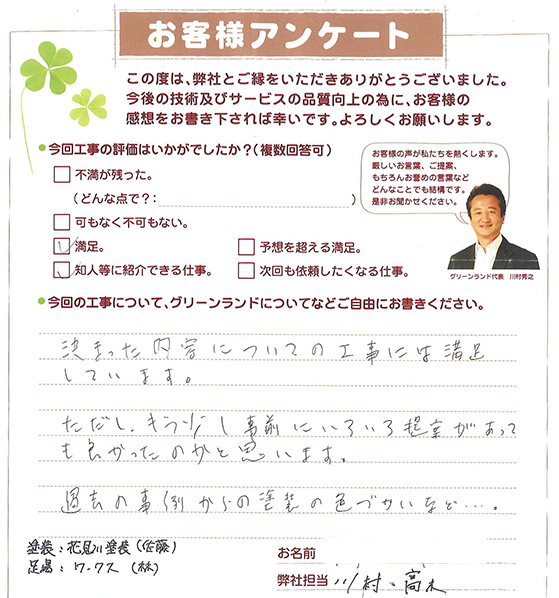 お客様アンケート
この度は、弊社とご縁をいただきありがとうございました。
今後の技術及びサービスの品質向上の為に、お客様の
感想をお書き下されば幸いです。よろしくお願いします。
●今回工事の評価はいかがでしたか?(複数回答可)
不満が残った。
(どんな点で?:
可もなく不可もない。
満足。
予想を超える満足。
知人等に紹介できる仕事。
次回も依頼したくなる仕事。
お客様の声が私たちを熱くします。
厳しいお言葉、ご提案、
もちろんお誉めの言葉など
どんなことでも結構です。
是非お聞かせください。
グリーンランド代表 川村秀之
●今回の工事について、グリーンランドについてなどご自由にお書きください。
決まった内容についての工事には満足
しています。
ただし、もう少し事前にいろいろ提案があって
も良かったのかと思います。
過去の事例からの塗装の色づかいなど…。
塗装:花見川塗装(佐藤)
足場:ワークス(林)
お名前
弊社担当 川村、高木